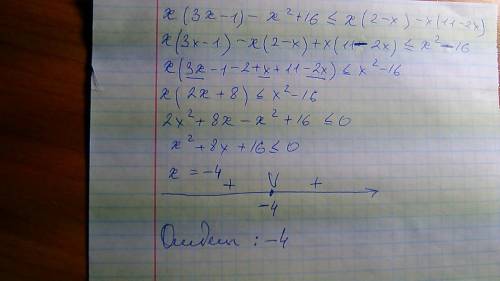 x(3x-1) - x²+16 ≤ x(2-x) - x(11-2x)
x(3x-1) - x(2-x) + x(11-2x) ≤ x²-16
x(3x-1-2+x+11-2x) ≤ x²-16
x(2x+8) ≤ x²-16
2x²+8x-x²+16 ≤ 0
x²+8x+16 ≤ 0
x = -4
+ V +
-4
Ответ: -4